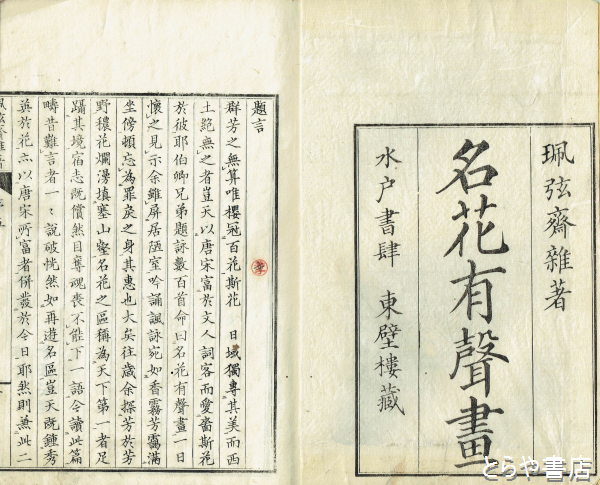 珮弦齋雜著
名花有聲畫
水戸書肆 東壁樓藏
題言
群芳之無算唯櫻冠百花斯花 日域獨專其美而西
土絶無之者豈天以唐宋富於文人詞客而愛嗇斯花
於彼耶伯卿兄弟題詠數百首命曰名花有聲畫一日
懷之見示余雖屏居陋室吟誦諷詠宛如香霧芳靄滿
坐傍頓忘為罪戻之身其惠也大矣往歳余探芳於芳
野穠花爛漫填塞山壑名花之區稱為天下第一者足
躡其境宿志既償然目奪魂喪不能下一語今讀此篇
疇昔難言者一〻説破恍然如再遊名區豈天既鍾秀
英於花亦以唐宋所富者併叢於今日耶然則無此二
珮弦齋雜著
とらや書店